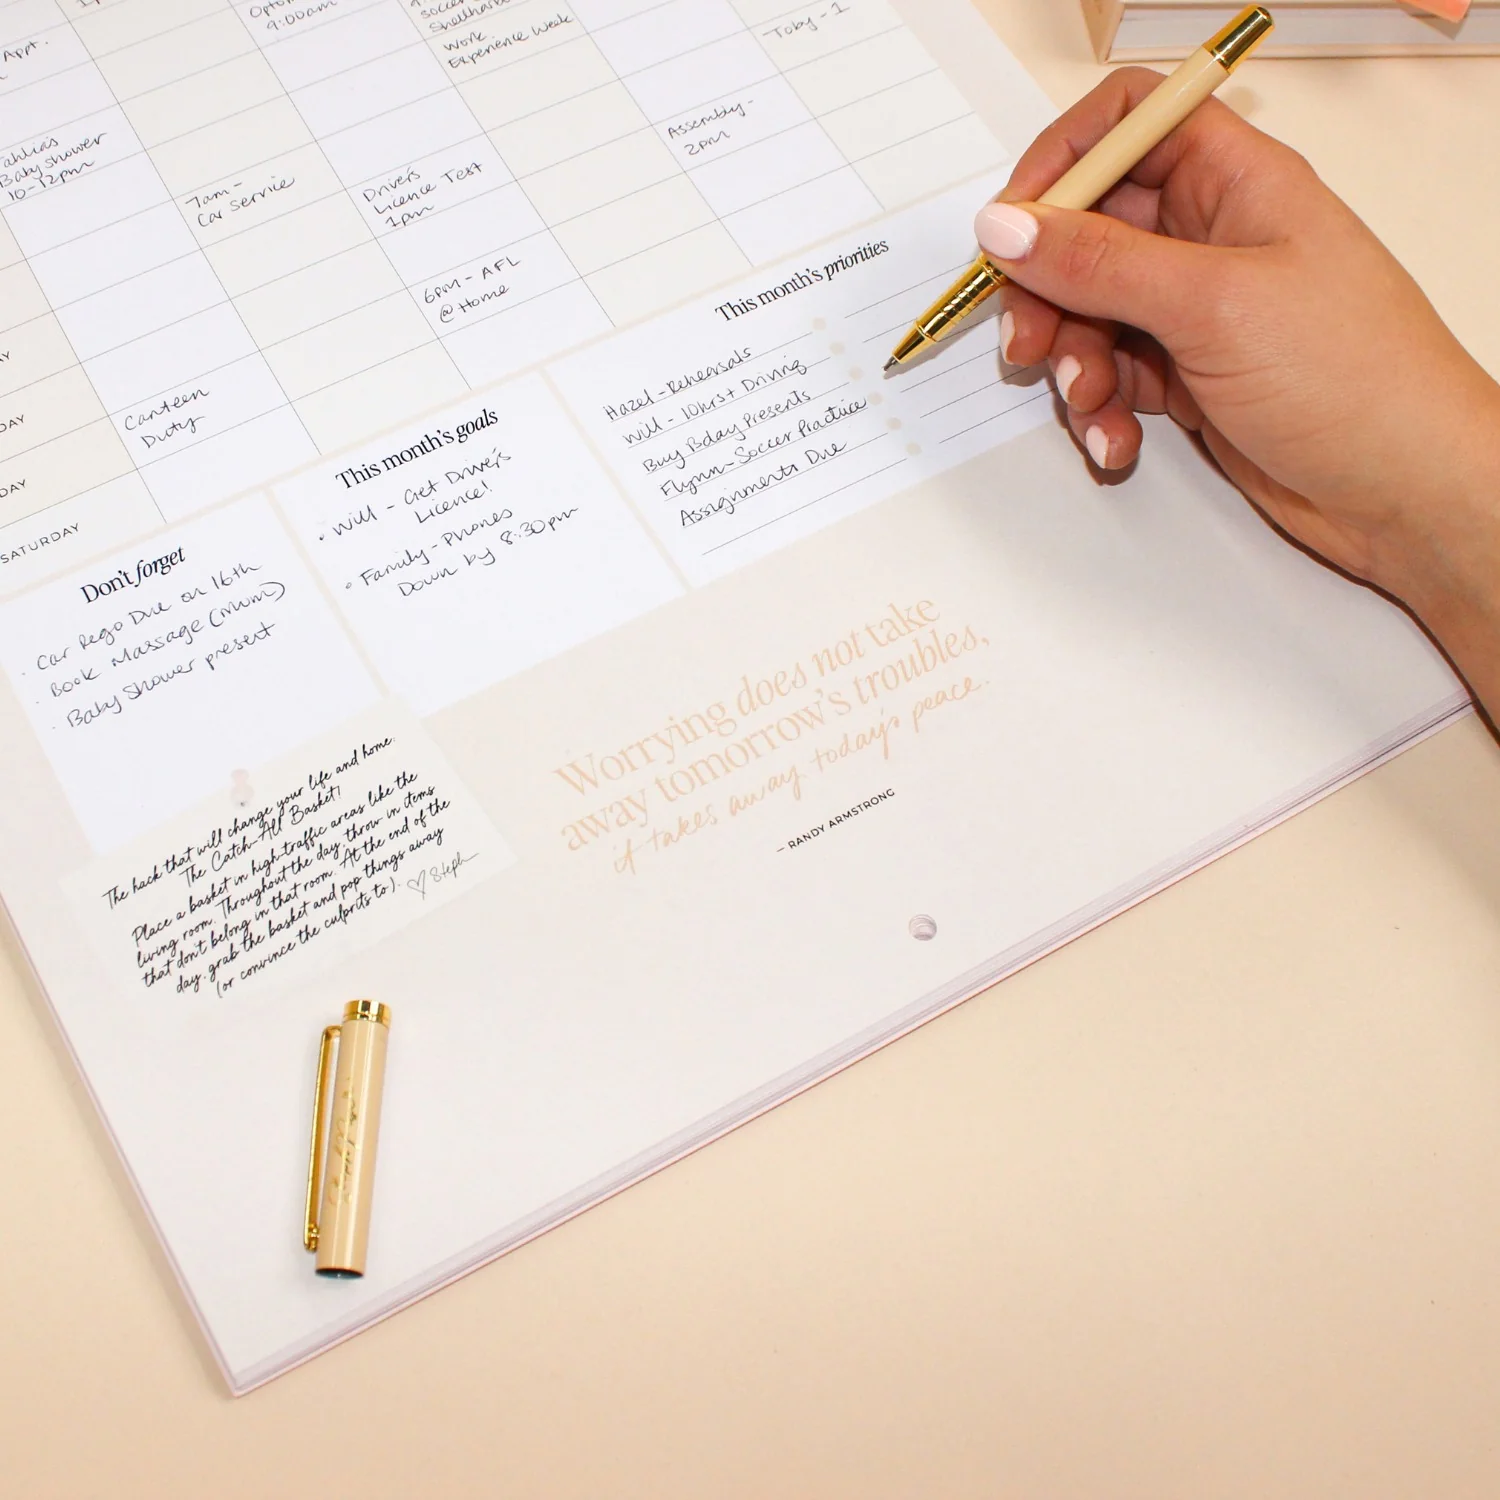 Appt.
9:00am
Work
Experience Week
Toby - 1
Baby Shower
10-12pm
7am -
Car Service
Driver's
Licence Test
1pm
Assembly -
2pm
6pm - AFL
@ Home
Canteen
Duty
AY
DAY
DAY
SATURDAY
Don't forget
· Car Rego Due on 16th
· Book Massage (Mum)
· Baby Shower present
This month's goals
• Will - Get Driver's
Licence!
• Family - Phones
Down by 8:30pm
This month's priorities
Hazel - Rehearsals
Will - 10hrs+ Driving
Buy Bday Presents
Flynn - Soccer Practice
Assignments Due
The hack that will change your life and home:
The Catch-All Basket!
Place a basket in high-traffic areas like the
living room. Throughout the day, throw in items
that don't belong in that room. At the end of the
day, grab the basket and pop things away
(or convince the culprits to). ♡ Steph
Worrying does not take
away tomorrow's troubles,
it takes away today's peace.
– RANDY ARMSTRONG